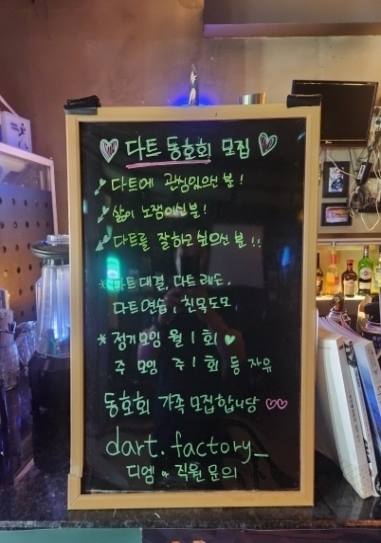 ♡ 다트 동호회 모집 ♡
다트에 관심있으신 분!
삶이 노잼이신분!
다트를 잘하고 싶으신 분!!
* 다트 대결, 다트 레슨,
다트연습, 친목도모
* 정기모임 월 1회 ♥
주 모임 주 1회 등 자유
동호회 가족 모집합니당 ♡♡
dart.factory_
디엠 or 직원 문의